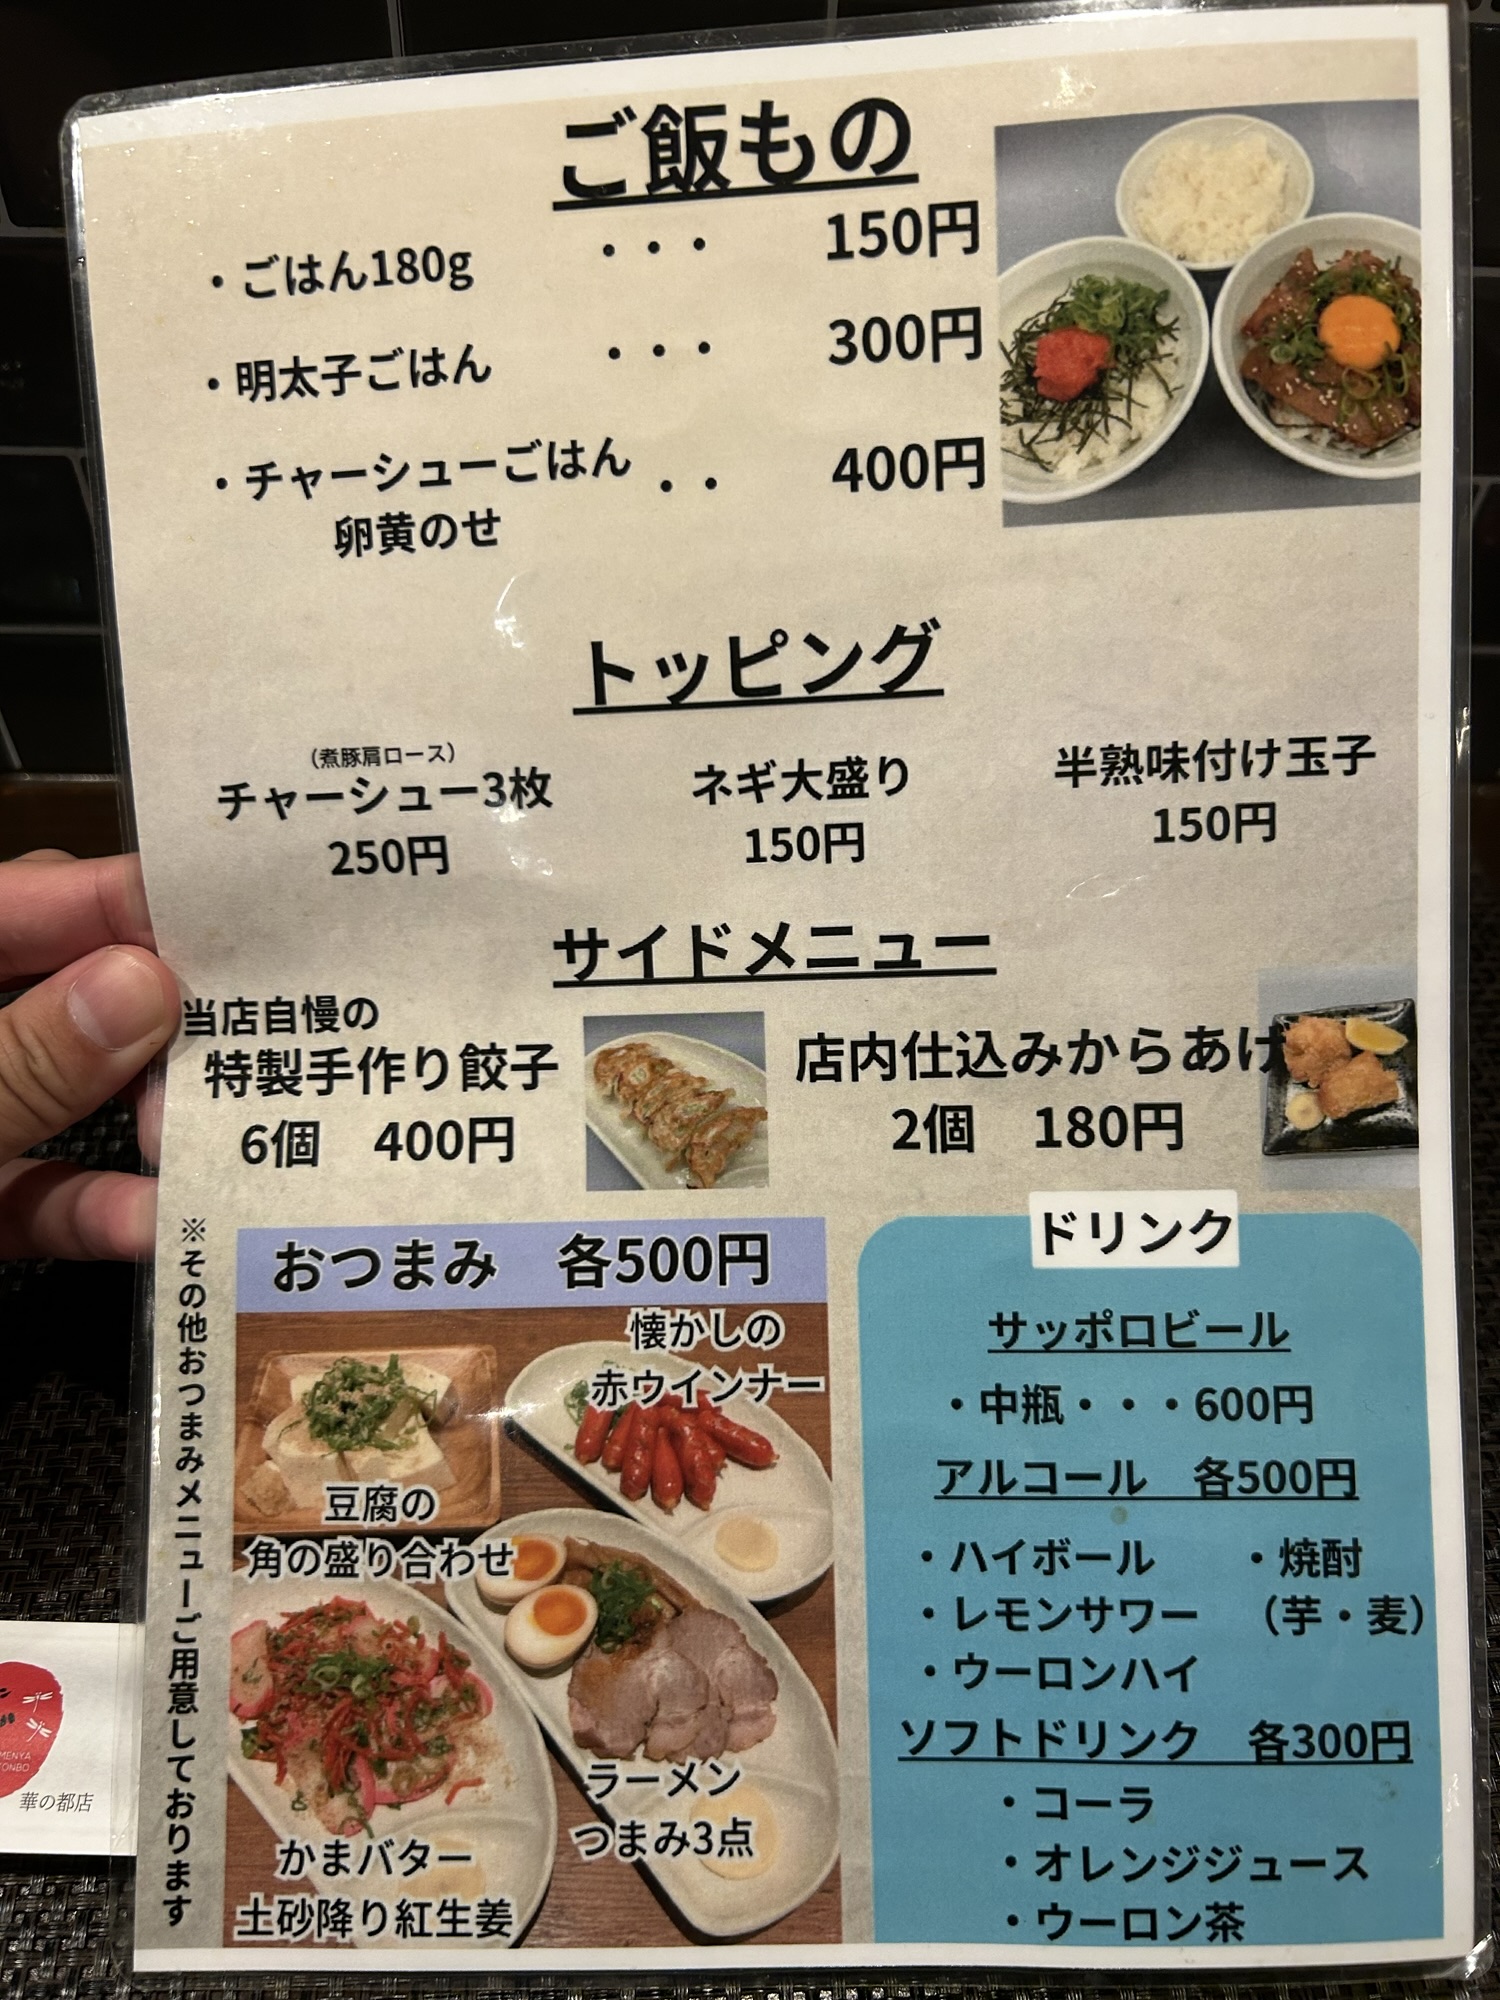 ご飯もの
・ごはん180g ・・・ 150円
・明太子ごはん ・・・ 300円
・チャーシューごはん ・・ 400円
卵黄のせ
トッピング
(煮豚肩ロース)
チャーシュー3枚
250円
ネギ大盛り
150円
半熟味付け玉子
150円
サイドメニュー
当店自慢の
特製手作り餃子
6個 400円
店内仕込みからあげ
2個 180円
※その他おつまみメニューご用意しております
おつまみ 各500円
懐かしの
赤ウインナー
豆腐の
角の盛り合わせ
ラーメン
つまみ3点
かまバター
土砂降り紅生姜
ドリンク
サッポロビール
・中瓶・・・600円
アルコール 各500円
・ハイボール ・焼酎
・レモンサワー (芋・麦)
・ウーロンハイ
ソフトドリンク 各300円
・コーラ
・オレンジジュース
・ウーロン茶
華の都店